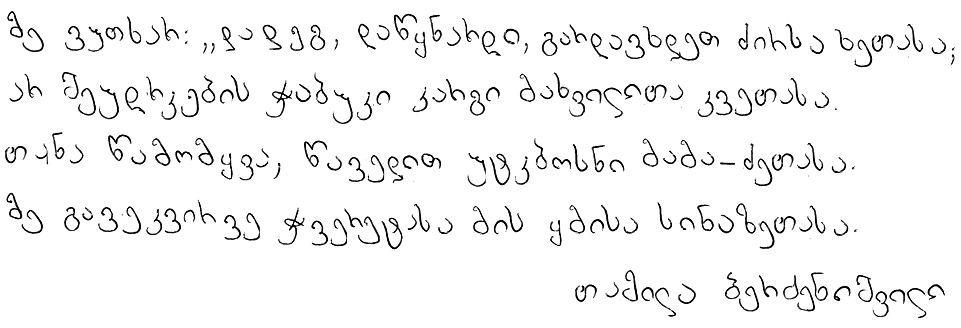 მე ვუთხარ: „დადეგ, დაწყნარდი, გარდავხდეთ ძირსა ხეთასა;
არ შეუდრკების ჭაბუკი კარგი მახვილთა კვეთასა.
თანა წამომყვა, წაველით უტკბოსნი მამა-ძეთასა.
მე გავეკვირვე ჭვრეტასა მის ყმისა სინაზეთასა.
თამილა ბერძენიშვილი